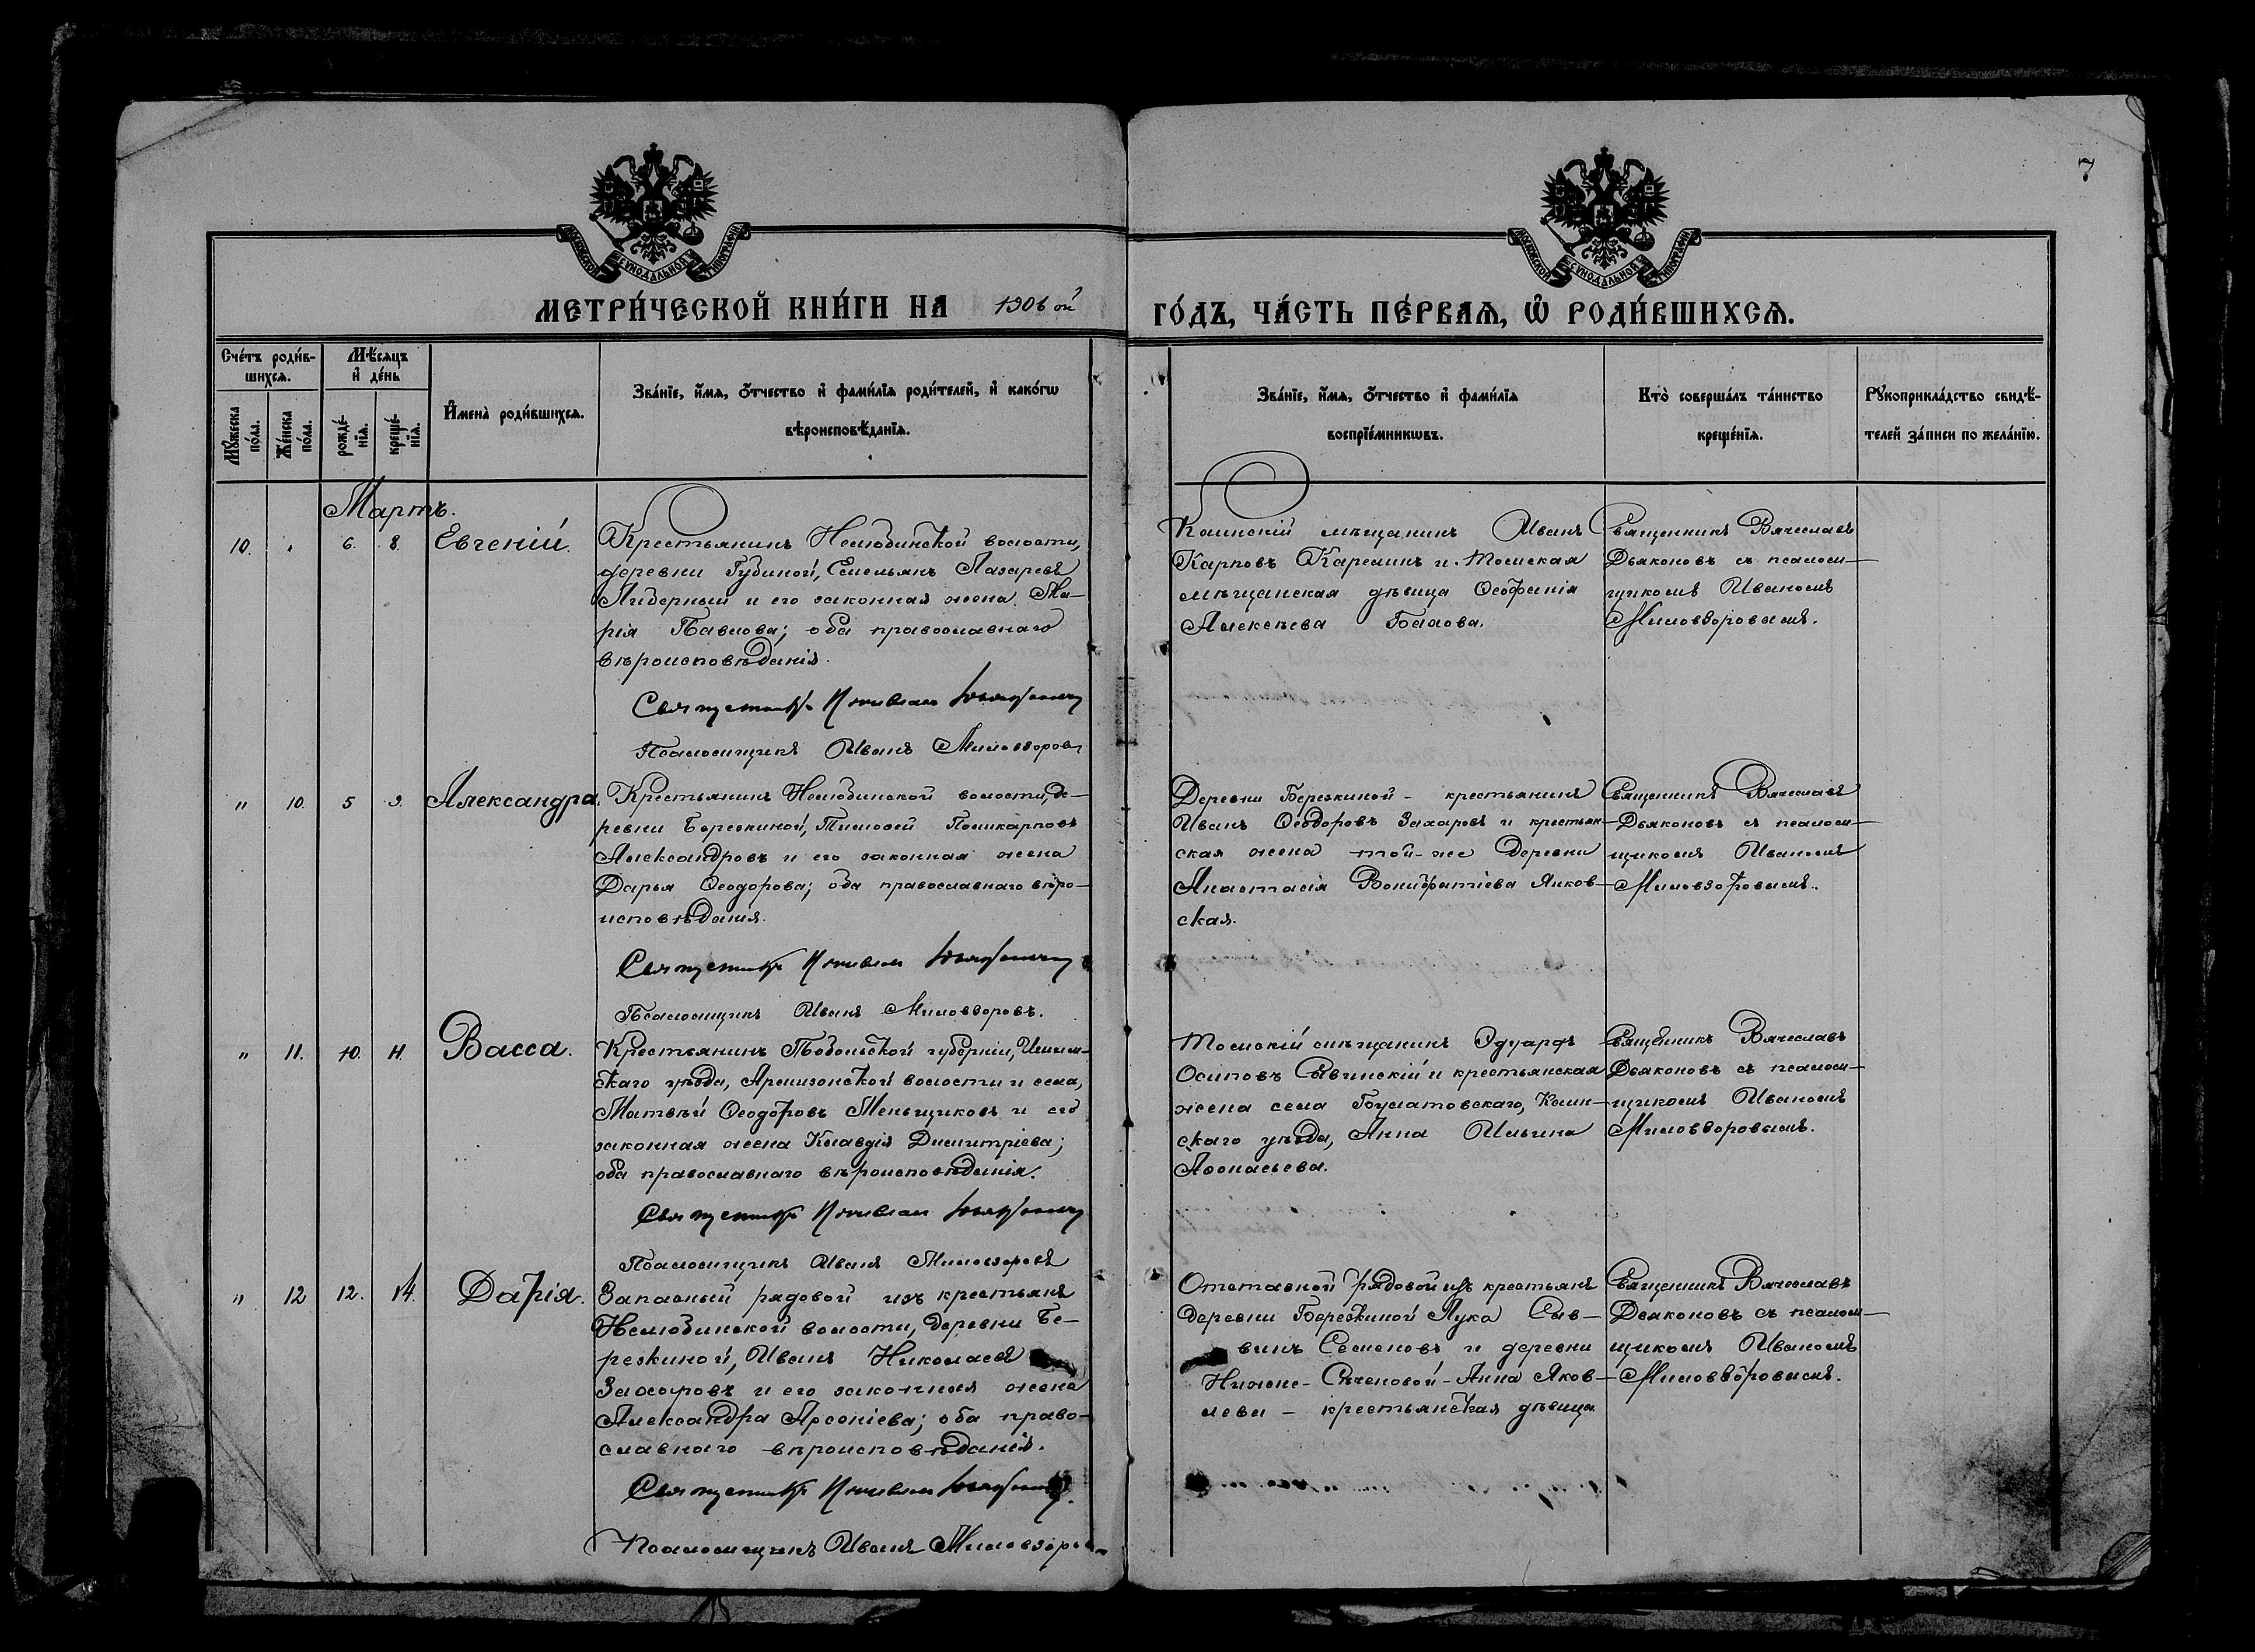 7
МОСКОВСКОЙ СѴНОДАЛЬНОЙ ТИПОГРАФІИ
МОСКОВСКОЙ СѴНОДАЛЬНОЙ ТИПОГРАФІИ
МЕТРИ́ЧЕСКОЙ КНИ́ГИ НА 1906 ой
ГО́ДЪ, ЧА́СТЬ ПЕ́РВАѦ, Ѽ РОДИ́ВШИХСѦ.
Сче́тъ роди́в-
шихсѧ.
Мѣ́сѧцъ
и҆ де́нь
Мꙋ́жеска
по́ла.
Же́нска
по́ла.
рожде́-
нїѧ.
креще́-
нїѧ.
И҆мена̀ роди́вшихсѧ.
Зва́нїе, и҆́мѧ, о҆́тчество и҆ фами́лїѧ роди́телей, и҆ како́гѡ
вѣроисповѣ́данїѧ.
Зва́нїе, и҆́мѧ, о҆́тчество и҆ фами́лїѧ
воспрїе́мникѡвъ.
Кто̀ соверша́лъ та́инство
креще́нїѧ.
Рꙋкоприкла́дство свидѣ́-
телей за́писи по жела́нїю.
Мартъ.
10. " 6. 8. Евгеній.
Крестьянинъ Нелюбинской волости,
деревни Губиной, Емельянъ Лазаревъ
Лидерный и его законная жена Ма-
рія Павлова; оба православнаго
вѣроисповѣданія.
Священникъ Вячеславъ Дьяконовъ
Псаломщикъ Иванъ Миловзоровъ
Каинскій мѣщанинъ Иванъ
Карповъ Карелинъ и Томская
мѣщанская дѣвица Ѳеофанія
Алексѣева Балова.
Священникъ Вячеславъ
Дьяконовъ съ псалом-
щикомъ Иваномъ
Миловзоровымъ.
" 10. 5 9. Александра.
Крестьянинъ Нелюбинской волости, де-
ревни Березкиной, Тимоѳей Поликарповъ
Александровъ и его законная жена
Дарья Ѳеодорова; оба православнаго вѣро-
исповѣданія.
Священникъ Вячеславъ Дьяконовъ
Псаломщикъ Иванъ Миловзоровъ.
Деревни Березкиной - крестьянинъ
Иванъ Ѳеодоровъ Захаровъ и крестьян-
ская жена той-же деревни
Анастасія Вонифатіева Янков-
ская.
Священникъ Вячеславъ
Дьяконовъ съ псалом-
щикомъ Иваномъ
Миловзоровымъ.
" 11. 10. 11. Васса.
Крестьянинъ Тобольской губерніи, Ишим-
скаго уѣзда, Армизонской волости и села,
Матвѣй Ѳеодоровъ Меньщиковъ и его
законная жена Клавдія Димитріева;
оба православнаго вѣроисповѣданія.
Священникъ Вячеславъ Дьяконовъ
Псаломщикъ Иванъ Миловзоровъ
Томскій мѣщанинъ Эдуардъ
Осиповъ Савинскій и крестьянская
жена села Булатовскаго, Каин-
скаго уѣзда, Анна Ильина
Аѳонасьева.
Священникъ Вячеславъ
Дьяконовъ съ псалом-
щикомъ Иваномъ
Миловзоровымъ.
" 12 12. 14. Дарія.
Запасный рядовой изъ крестьянъ
Нелюбинской волости, деревни Бе-
резкиной, Иванъ Николаевъ
Захаровъ и его законная жена
Александра Арсеніева; оба право-
славнаго вѣроисповѣданія.
Священникъ Вячеславъ Дьяконовъ
Псаломщикъ Иванъ Миловзоровъ
Отставной рядовой изъ крестьянъ
деревни Березкиной Лука Сыв-
винъ Семеновъ и деревни
Нижне-Сѣченовой - Анна Яков-
лева - крестьянская дѣвица
Священникъ Вячеславъ
Дьяконовъ съ псалом-
щикомъ Иваномъ
Миловзоровымъ.